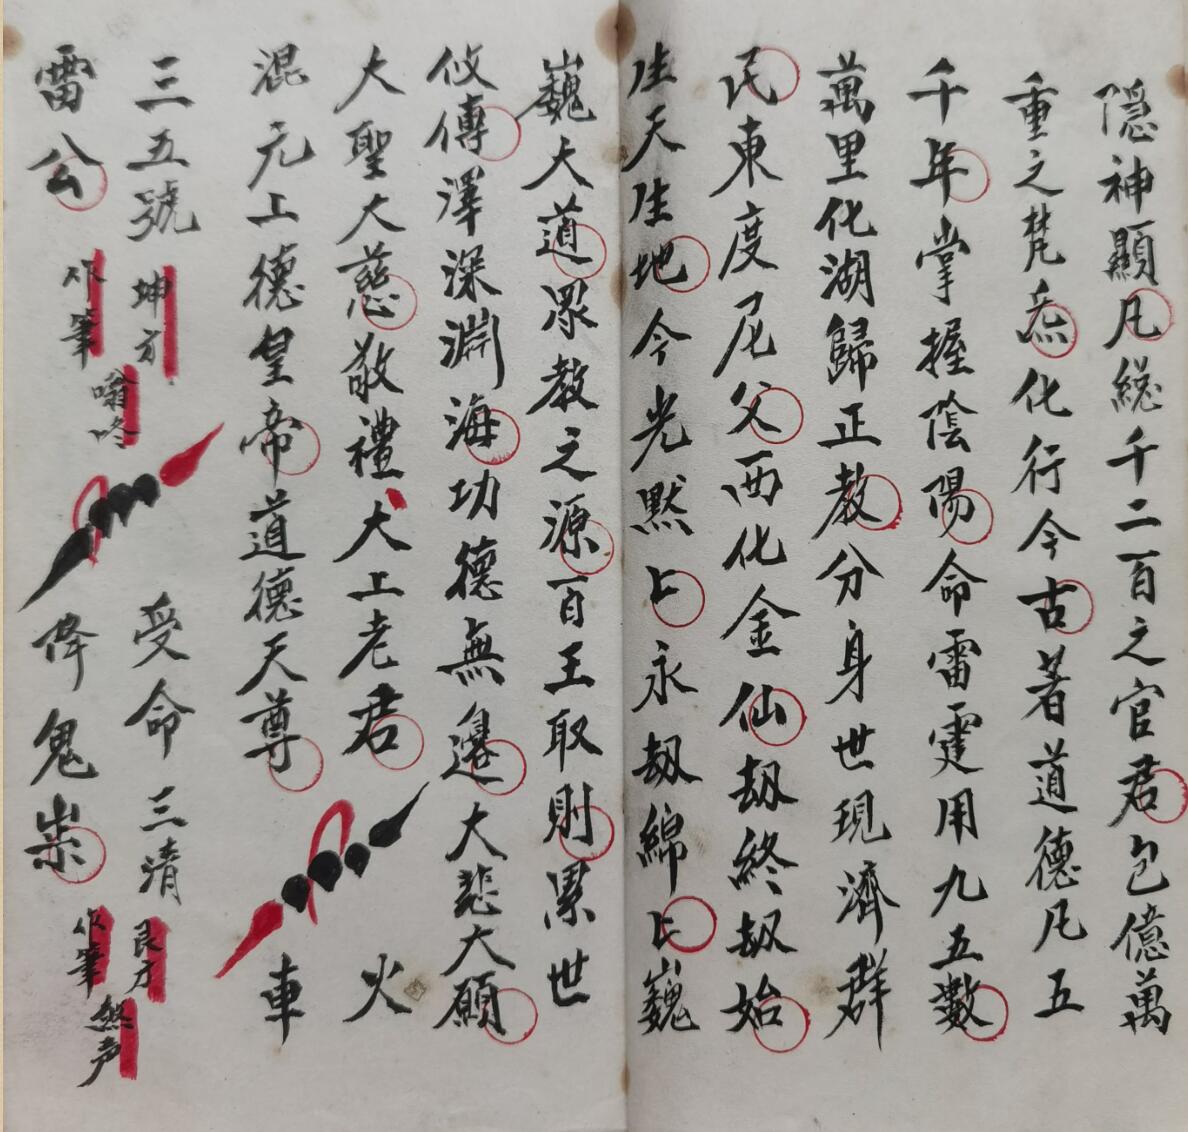 隱神顯凡總千二百之官君包億萬
重之梵炁化行今古著道德凡五
千年掌握陰陽命雷霆用九五數
萬里化湖歸正教分身世現濟群
民東度尼父西化金仙劫終劫始
生天生地今光默上永劫綿上巍
巍大道眾教之源百王取則累世
攸傳澤深淵海功德無邊大悲大願
大聖大慈敬禮大上老君 火
混元上德皇帝道德天尊 車
三五號 坤方 嗡咚 受命三清 艮方 無声
雷公 作筆 降鬼祟 作筆